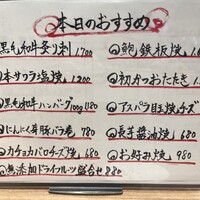 本日のおすすめ
黒毛和牛炙り刺 1,700
本サワラ塩焼 1,200
黒毛和牛ハンバーグ100g 1180
にんにく芽豚バラ巻 780
カチョカバロチーズ焼 680
無添加ドライフルーツ盛合せ 880
鮑鉄板焼
初かつおたたき
アスパラ目玉チーズ
長芋醤油焼 680
お好み焼 980